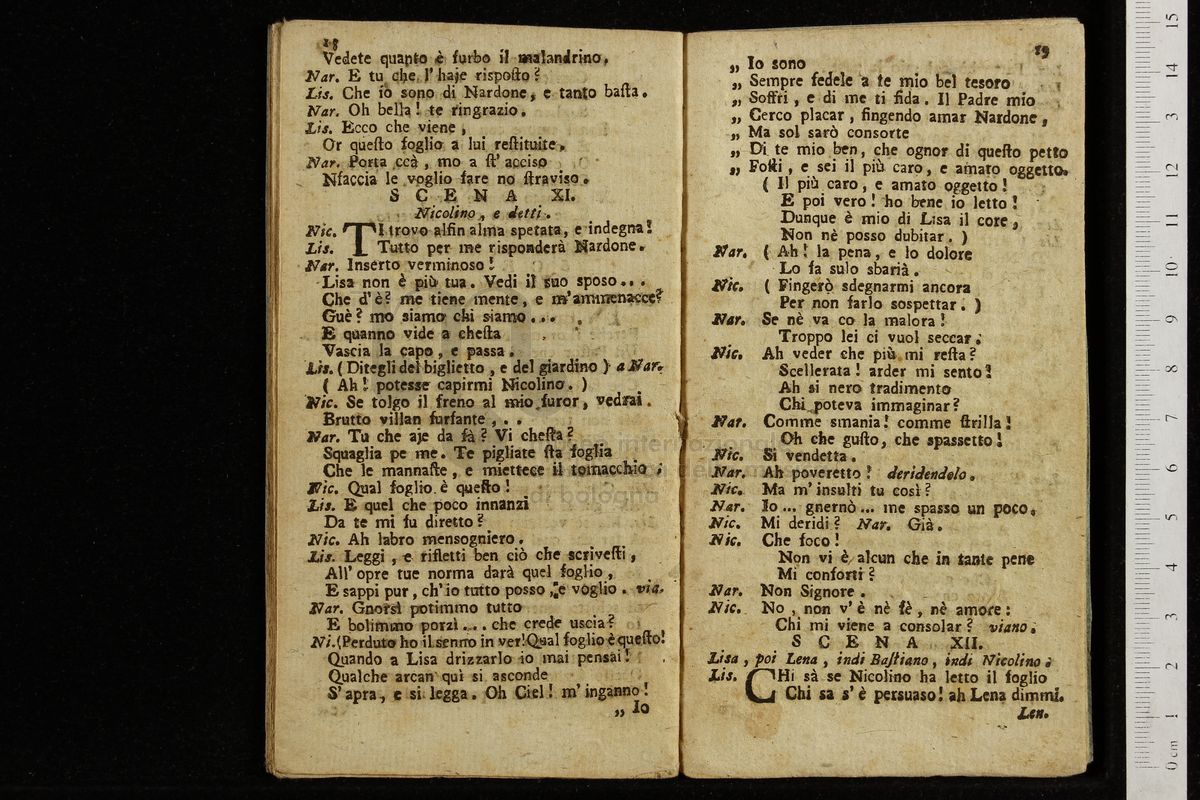 18
Vedete quanto è furbo il malandrino.
Nar. E tu che l' haje rispoſto?
Lis. Che io sono di Nardone, e tanto baſta.
Nar. Oh bella! te ringrazio.
Lis. Ecco che viene,
Or queſto foglio a lui reſtituite.
Nar. Porta ccà, mo a ſt' acciso
Nfaccia le voglio fare no ſtraviso.
S C E N A XI.
Nicolino, e detti.
Nic. TI trovo alfin alma spetata, e indegna!
Lis. Tutto per me risponderà Nardone.
Nar. Inserto verminoso!
Lisa non è più tua. Vedi il suo sposo...
Che d' è? me tiene mente, e m'ammenacce?
Guè? mo siamo chi siamo...
E quanno vide a cheſta
Vascia la capo, e passa.
Lis. (Ditegli del biglietto, e del giardino) a Nar.
( Ah! potesse capirmi Nicolino. )
Nic. Se tolgo il freno al mio furor, vedrai.
Brutto villan furfante, ..
Nar. Tu che aje da fà? Vi cheſta?
Squaglia pe me. Te pigliate ſta foglia
Che le mannaſte, e miettece il tomacchio.
Nic. Qual foglio è queſto!
Lis. E quel che poco innanzi
Da te mi fu diretto?
Nic. Ah labro mensogniero.
Lis. Leggi, e rifletti ben ciò che scriveſti,
All' opre tue norma darà quel foglio,
E sappi pur, ch'io tutto posso, e voglio. via.
Nar. Gnorsì potimmo tutto
E bolimmo porzì.... che crede uscia?
Ni.(Perduto ho il senno in ver!Qual foglio è queſto!
Quando a Lisa drizzarlo io mai pensai!
Qualche arcan qui si asconde
S' apra, e si legga. Oh Ciel! m' inganno!
„ Io
19
„ Io sono
„ Sempre fedele a te mio bel tesoro
„ Soffri, e di me ti fida. Il Padre mio
„ Cerco placar, fingendo amar Nardone,
„ Ma sol sarò consorte
„ Di te mio ben, che ognor di queſto petto
„ Foſti, e sei il più caro, e amato oggetto.
( Il più caro, e amato oggetto!
E poi vero! ho bene io letto!
Dunque è mio di Lisa il core,
Non nè posso dubitar. )
Nar. ( Ah! la pena, e lo dolore
Lo fa sulo sbarià.
Nic. ( Fingerò sdegnarmi ancora
Per non farlo sospettar. )
Nar. Se nè va co la malora!
Troppo lei ci vuol seccar.
Nic. Ah veder che più mi reſta?
Scellerata! arder mi sento!
Ah si nero tradimento
Chi poteva immaginar?
Nar. Comme smania! comme ſtrilla!
Oh che guſto, che spassetto!
Nic. Si vendetta.
Nar. Ah poveretto! deridendolo.
Nic. Ma m' insulti tu così?
Nar. Io ... gnernò ... me spasso un poco.
Nic. Mi deridi? Nar. Già.
Nic. Che foco!
Non vi è alcun che in tante pene
Mi conforti?
Nar. Non Signore.
Nic. No, non v' è nè fè, nè amore:
Chi mi viene a consolar? viano.
S C E N A XII.
Lisa, poi Lena, indi Baſtiano, indi Nicolino.
Lis. CHi sà se Nicolino ha letto il foglio
Chi sa s' è persuaso! ah Lena dimmi.
Len.